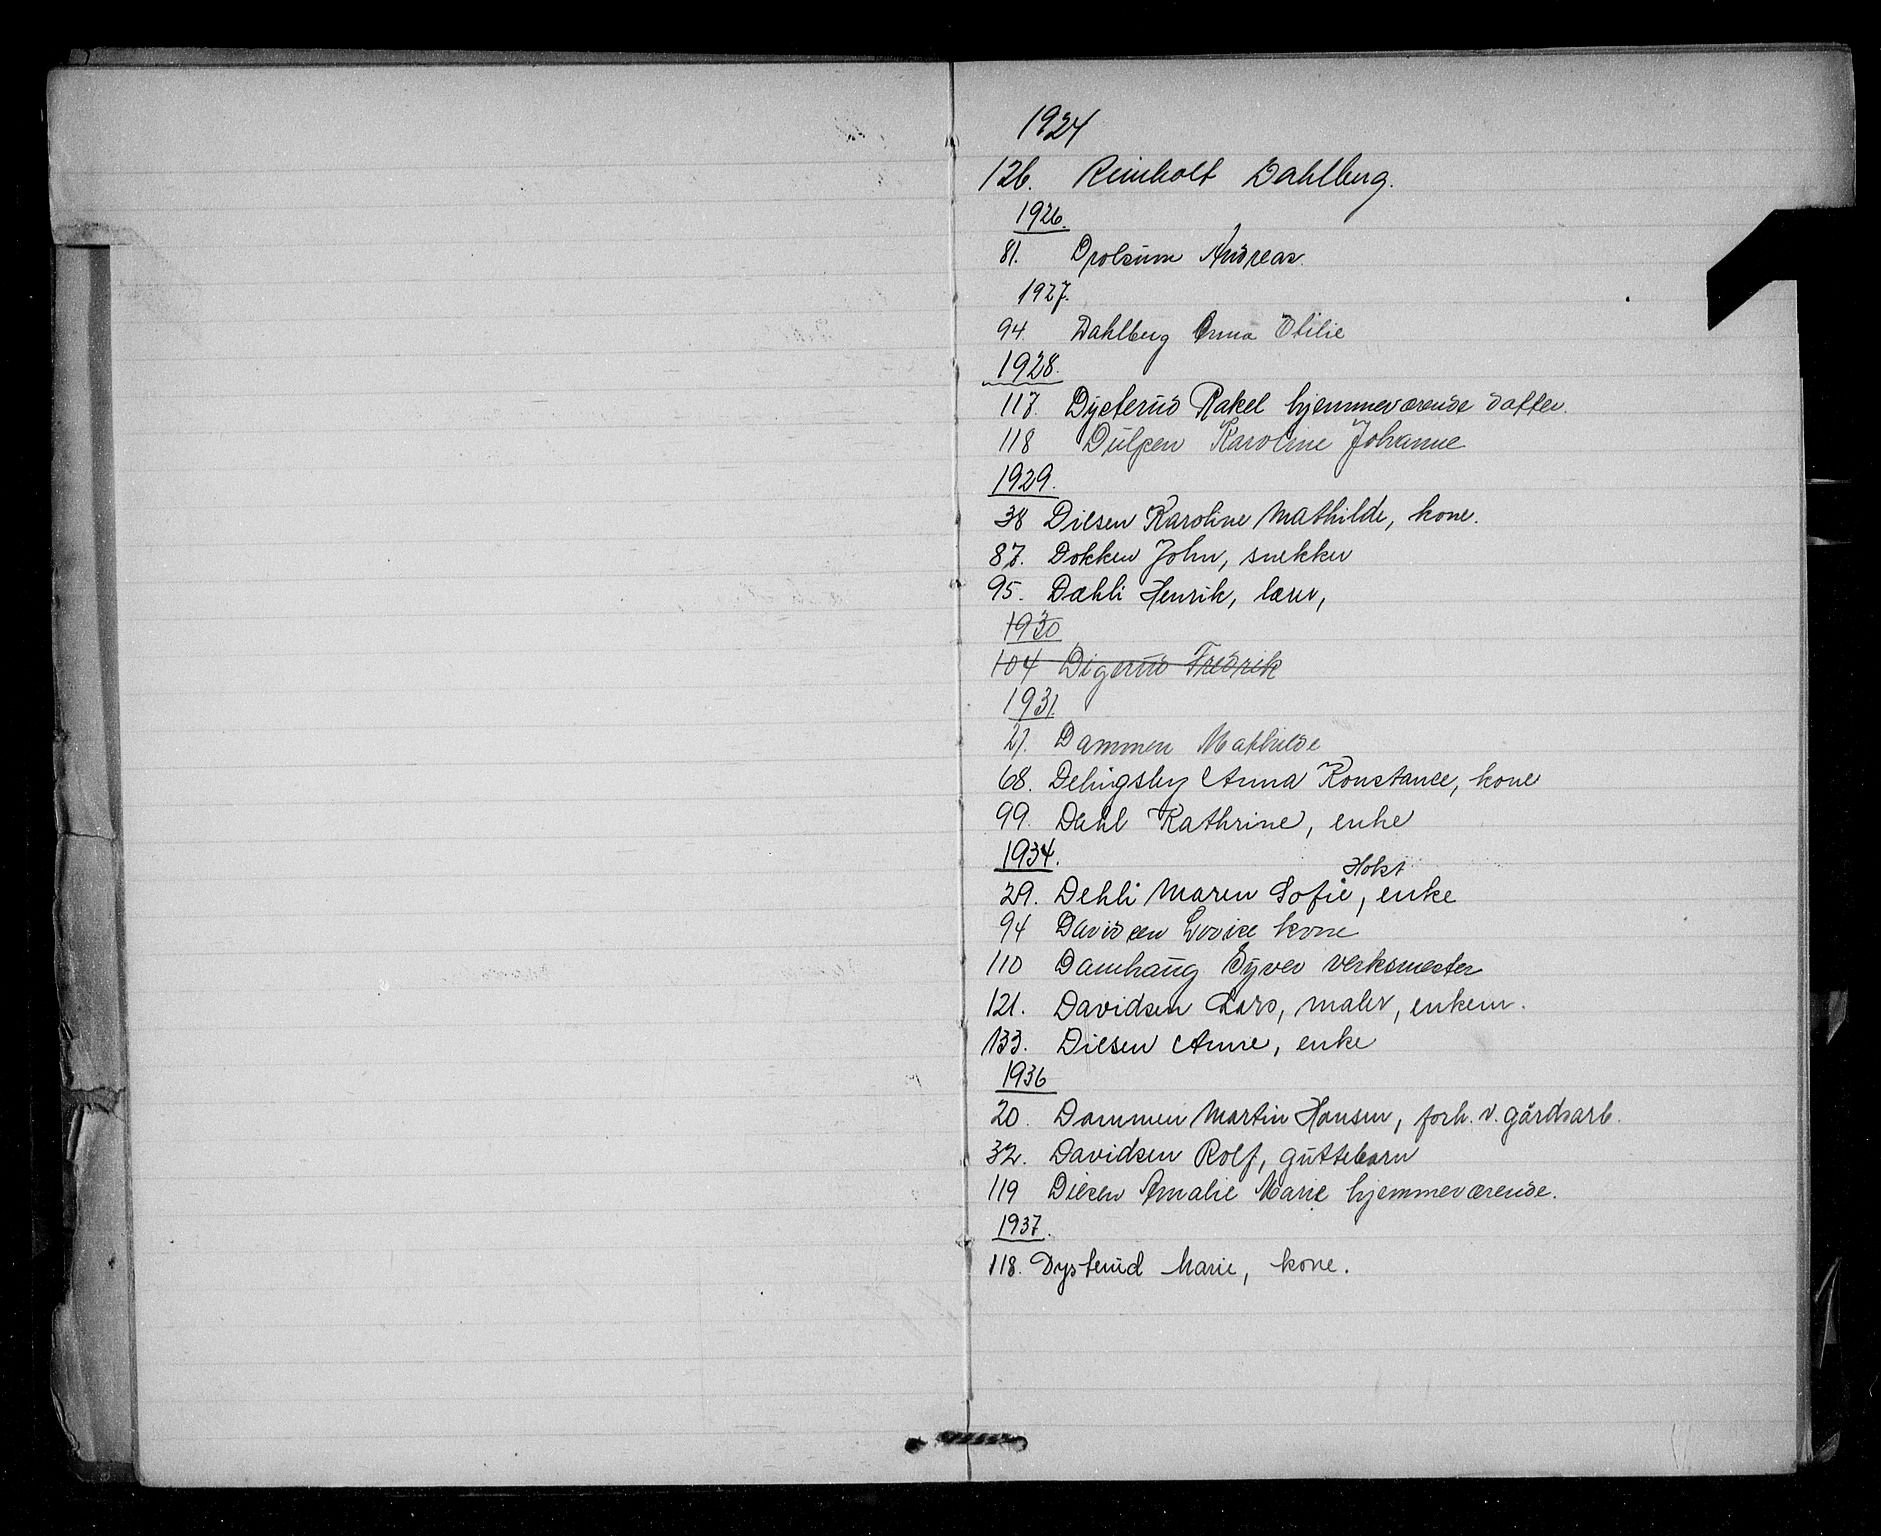 1924
126. Reinholt Dahlberg.
1926.
81. Drolsum Andreas.
1927.
94. Dahlberg Anna Otilie
1928.
117. Dysterud Rakel hjemmeværende datter.
118 Dulpen Karoline Johanne
1929.
38 Diesen Karoline Mathilde, kone.
87. Dokken John, snekker
95. Dæhli Henrik, lærer,
1930
104 Digerud Fredrik
1931.
27. Dammen Mathilde
68. Dehngsby Anna Konstance, kone
99. Dahl Kathrine, enke
1934.
Holst
29. Dehli Maren Sofie, enke
94 Davidsen Lovise kone
110 Damhaug Syver verksmester
121. Davidsen Lars, maler, enkem.
133. Diesen Anne, enke
1936
20. Dammen Martin Hansen, forh. v. gårdsarb.
32. Davidsen Rolf, guttebarn
119 Diesen Amalie Marie hjemmeværende.
1937.
118. Dysterud Marie, kone.